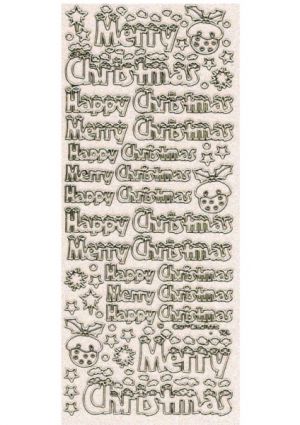 Merry
Christmas
Happy Christmas
Merry Christmas
Happy Christmas
Merry Christmas
Happy Christmas
Happy Christmas
Merry Christmas
Happy Christmas
Merry Christmas
Happy Christmas
Merry
Christmas